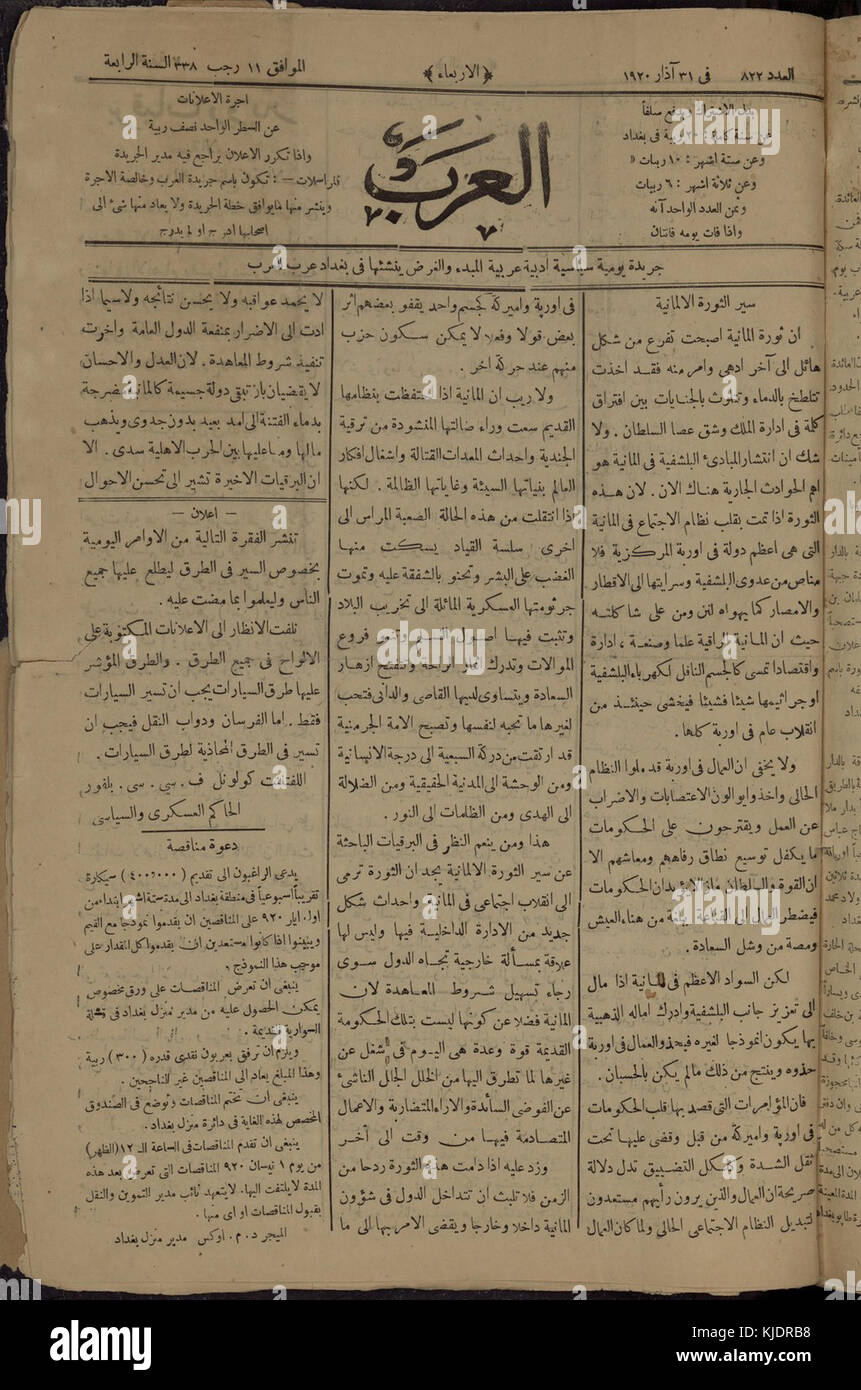 العدد ٨٢٢ في ٣١ آذار ١٩٢٠
﴿ الاربعاء ﴾
الموافق ١١ رجب ٣٣٨ السنة الرابعة
بدل الاشتراك يدفع سلفاً
وعن ستة اشهر : ١٠ ربيات »
وعن ثلاثة اشهر : ٦ ربيات
وثمن العدد الواحد آنه
واذا فات يومه فآنتان
العرب
اجرة الاعلانات
عن السطر الواحد نصف ربية
واذا تكرر الاعلان يراجع فيه مدير الجريدة
تكون باسم جريدة العرب وخالصة الاجرة
وينشر منها مايوافق خطة الجريدة ولا يعاد منها شئ الى
اصحابها ادرج او لم يدرج
جريدة يومية سياسية ادبية عربية المبدء والغرض ينشئها في بغداد عرب للعرب
سير الثورة الالمانية
ان ثورة المانية اصبحت تفرع من شكل
هائل الى آخر ادهى وامر منه فقد اخذت
تتلطخ بالدماء وتتلوث بالجنايات بين افتراق
كلمة في ادارة الملك وشق عصا السلطان . ولا
شك ان انتشار المبادئ البلشفية في المانية هو
اهم الحوادث الجارية هناك الان . لان هذه
الثورة اذا تمت بقلب نظام الاجتماع في المانية
التي هي اعظم دولة في اوربة المركزية فلا
مناص من عدوى البلشفية وسرايتها الى الاقطار
والامصار كما يهواه لنن ومن على شاكلته
حيث ان المانية الراقية علما وصنعة ، ادارة
واقتصادا تمسى كالجسم الناقل لكهرباء البلشفية
او جراثيمها شيئا فشيئا فيخشى حينئذ من
انقلاب عام في اوربة كلها .
ولا يخفى ان العمال في اوربة قد ملوا النظام
الحالى واخذوا يوالون الاعتصابات والاضراب
عن العمل ويقترجون على الحكومات
ما يكفل توسيع نطاق رفاههم ومعاشهم الا
ان القوة والسلطان مازالا بيدان الحكومات
فيضطر العمال الى القناعة بلقمة من هناء العيش
ومصة من وشل السعادة .
لكن السواد الاعظم في المانية اذا مال
الى تعزيز جانب البلشفية وادرك اماله الذهبية
بها يكون انموذجا لغيره فيحذو العمال في اوربة
حذوه وينتج من ذلك مالم يكن بالحسبان .
فان المؤامرات التي قصد بها قلب الحكومات
في اوربة واميركة من قبل وقضى عليها تحت
ثقل الشدة وبشكل التضييق تدل دلالة
صريحة ان العمال والذين يرون رأيهم مستعدون
لتبديل النظام الاجتماعى الحالى ولما كان العمال
في اوربة واميركة كجسم واحد يقفو بعضهم اثر
بعض قولا وفعلا لا يمكن سكون حزب
منهم عند حركة آخر .
ولا ريب ان المانية اذا احتفظت بنظامها
القديم سعت وراء ضالتها المنشودة من ترقية
الجندية واحداث المعدات القتالة واشغال افكار
العالم بنياتها السيئة وغاياتها الظالمة . لكنها
اذا انتقلت من هذه الحالة الصعبة المراس الى
اخرى سلسة القياد يسكت منها
الغضب على البشر وتحنو بالشفقة عليه وتموت
جرثومتها العسكرية المائلة الى تخريب البلاد
وتثبت فيها اصول السير وتنمو فروع
الموالات وتدرك اثمار الراحة وتتفتح ازهار
السعادة ويتساوى لديها القاصى والدانى فتحب
لغيرها ما تحبه لنفسها وتصبح الامة الجرمنية
قد ارتقت من دركة السبعية الى درجة الانسانية
ومن الوحشة الى المدنية الحقيقية ومن الضلالة
الى الهدى ومن الظلمات الى النور .
هذا ومن ينعم النظر في البرقيات الباحثة
عن سير الثورة الالمانية يجد ان الثورة ترمى
الى انقلاب اجتماعى في المانية واحداث شكل
جديد من الادارة الداخلية فيها وليس لها
علاقة بمسألة خارجية تجاه الدول سوى
رجاء تسهيل شروط المعاهدة لان
المانية فضلا عن كونها ليست بتلك الحكومة
القديمة قوة وعدة هى اليوم في شغل عن
غيرها لما تطرق اليها من الخلل الحال الناشئ
عن الفوضى السائدة والاراء المتضاربة والاعمال
المتصادمة فيها من وقت الى آخر
وزد عليه اذا دامت هذه الثورة ردحا من
الزمن فلا تلبث ان تتداخل الدول في شؤون
المانية داخلا وخارجا ويقضى الامر بها الى ما
لا يحمد عواقبه ولا يحسن نتائجه ولاسيما اذا
ادت الى الاضرار بمنفعة الدول العامة واخرت
تنفيذ شروط المعاهدة . لان العدل والاحسان
لا يقضيان بان تبقى دولة جسيمة كالمانية مضرجة
بدماء الفتنة الى امد بعيد بدون جدوى ويذهب
مالها وما عليها بين الحرب الاهلية سدى . الا
ان البرقيات الاخيرة تشير الى تحسن الاحوال
— اعلان —
تنشر الفقرة التالية من الاوامر اليومية
بخصوص السير في الطرق ليطلع عليها جميع
الناس وليعلموا بما مضت عليه .
تلفت الانظار الى الاعلانات المكتوبة على
الالواح في جميع الطرق . والطرق المؤشر
عليها طرق السيارات يجب ان تسير السيارات
فقط . اما الفرسان ودواب النقل فيجب ان
تسير في الطرق المحاذية لطرق السيارات .
اللفتننت كولونل ف . سى . سى . بلفور
الحاكم العسكرى والسياسى
دعوة مناقصة
يدعى الراغبون الى تقديم ( ٤٠٠،٠٠٠ ) سيكارة
تقريباً اسبوعياً في منطقة بغداد الى مدة ستة اشهر ابتداء من
اول ايار ٩٢٠ على المناقصين ان يقدموا نموذجا مع القيم
ويبينوا اذا كانوا مستعدين ان يقدموا كل المقدار على
موجب هذا النموذج .
ينبغى ان تعرض المناقصات على ورق مخصوص
يمكن الحصول عليه من مدير منزل بغداد في قشلة
السوارية القديمة .
ويلزم ان ترفق بعربون نقدى قدره ( ٣٠٠ ) ربية
وهذا المبلغ يعاد الى المناقصين غير الناجحين .
ينبغى ان تختم المناقصات وتوضع في الصندوق
المخصص لهذه الغاية في دائرة منزل بغداد .
ينبغى ان تقدم المناقصات في الساعة الـ ١٢ (الظهر)
من يوم ١ نيسان ٩٢٠ المناقصات التي تعرض بعد هذه
المدة لا يلتفت اليها . لا يتعهد نائب مدير التموين والنقل
بقبول المناقصات او اى منها .
الميجر د . م . اوكس مدير منزل بغداد
alamy
Image ID: KJDRB8
www.alamy.com